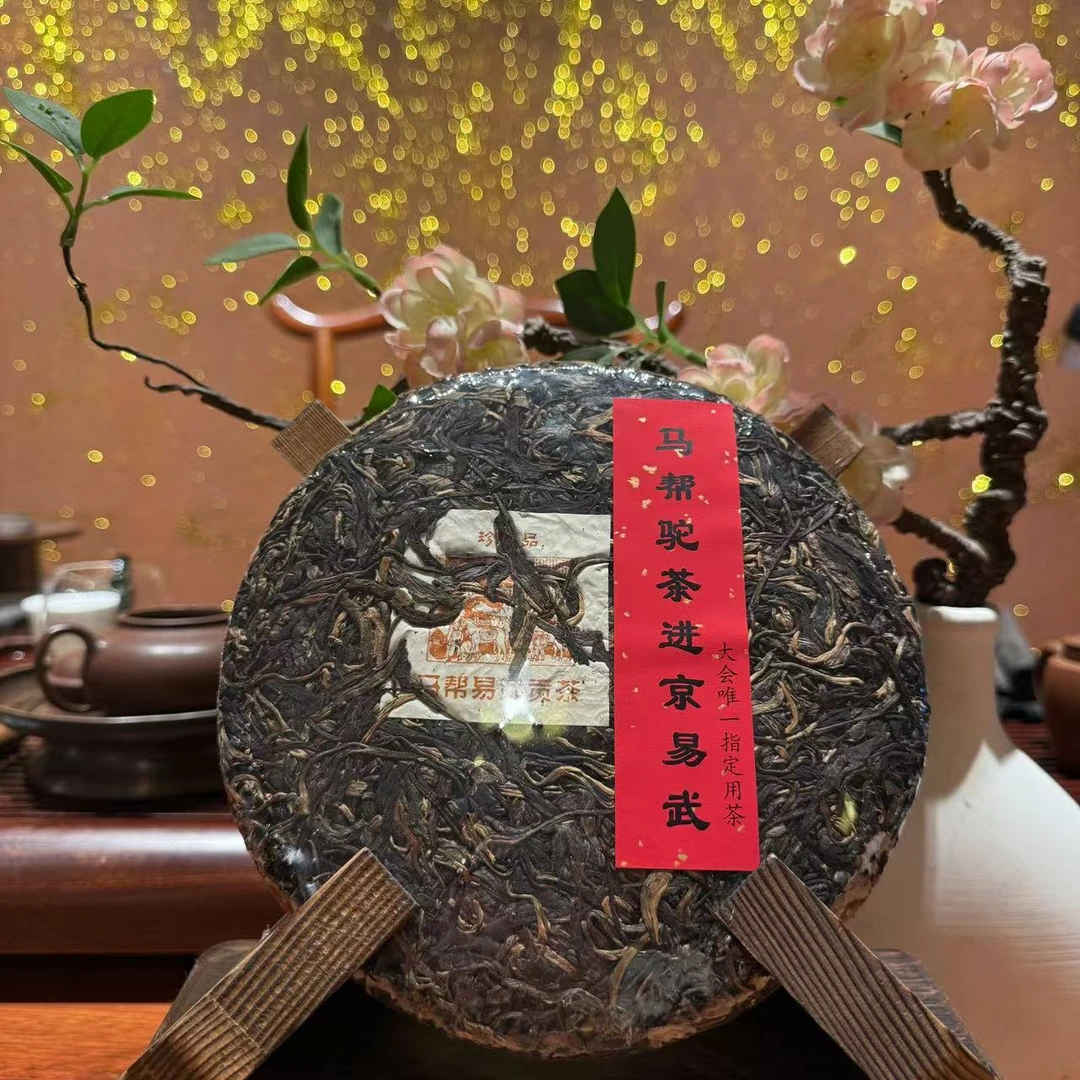 马帮驼茶进京易武
大会唯一指定用茶
珍 品
马帮易 贡茶